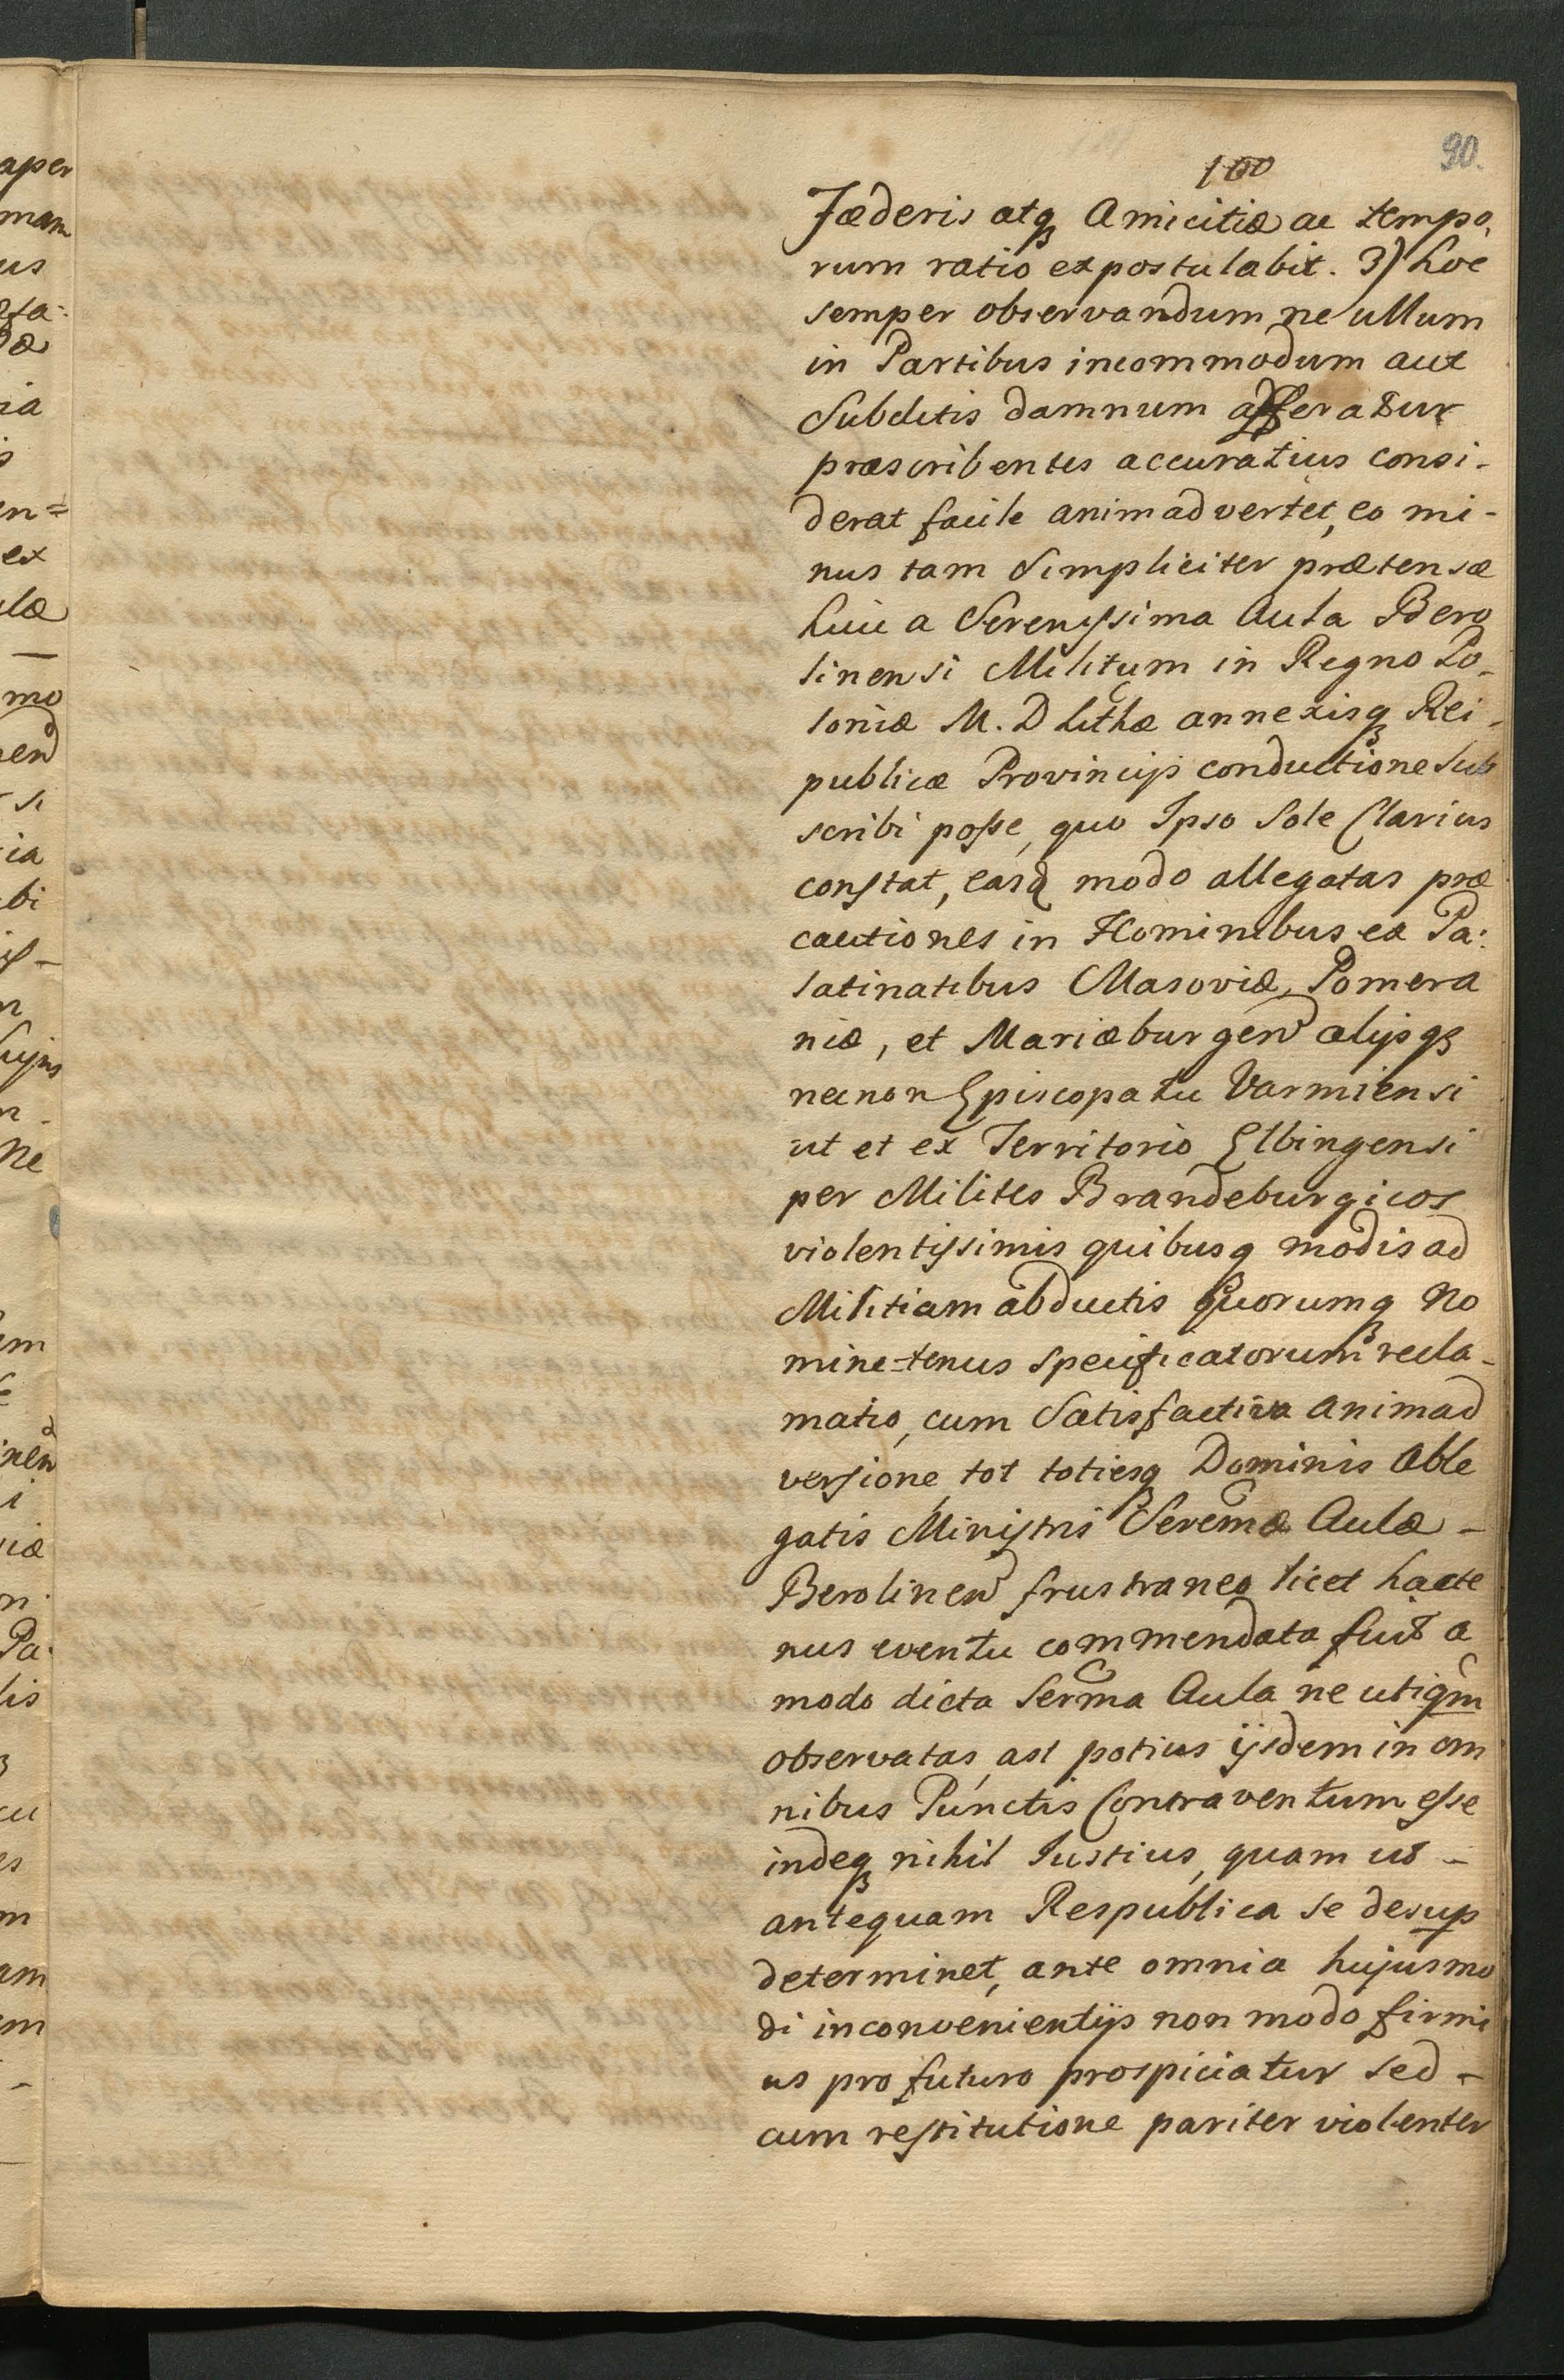 90.
100
Fæderis atqꝫ Amicitiæ ac tempo,
rum ratio expostulabit. 3) hoc
semper observandum ne ullum
in Partibus incommodum aut
Subditis damnum afferatur
præscribentes accuratius consi-
derat facile animadvertet, eo mi-
nus tam Simpliciter prætensæ
huic a Serenissima Aula Bero
linensi Militum in Regno Po-
loniæ M. D Lithæ annexisqꝫ Rei-
publicæ Provincijs conductione sub
scribi posse, quo Ipso Sole Clarius
constat, easq modo allegatas præ
cautiones in Hominibus ex Pa:
latinatibus Masoviæ, Pomera
niæ, et Mariæburgen alijsqꝫ
necnon Episcopatu Varmiensi
ut et ex Territorio Elbingensi
per Milites Brandeburgicos
violentissimis quibusq modis ad
Militiam abductis quorumqꝫ No
mine-tenus specificatorum recla-
matio, cum Satisfactiva animad
versione, tot totiesqꝫ Dominis Able
gatis Ministris Serenmæ Aulæ -
Berolinen frustraneo licet hacte
nus eventu commendata fuit a
modo dicta Serma Aula ne utiqm
observatas, ast potius ijsdem in om
nibus Punctis Contraventum esse
indeqꝫ nihil Iustius, quam ut -
antequam Respublica se desup
determinet, ante omnia hujusmo
di inconvenientijs non modo firmi
us pro futuro prospiciatur sed -
cum restitutione pariter violenter
aper
mam
us
ia
en=
ex
læ
mo
si
ia
bi
hujus
ne
um
nen
Pa:
lis
cu
es
am
em